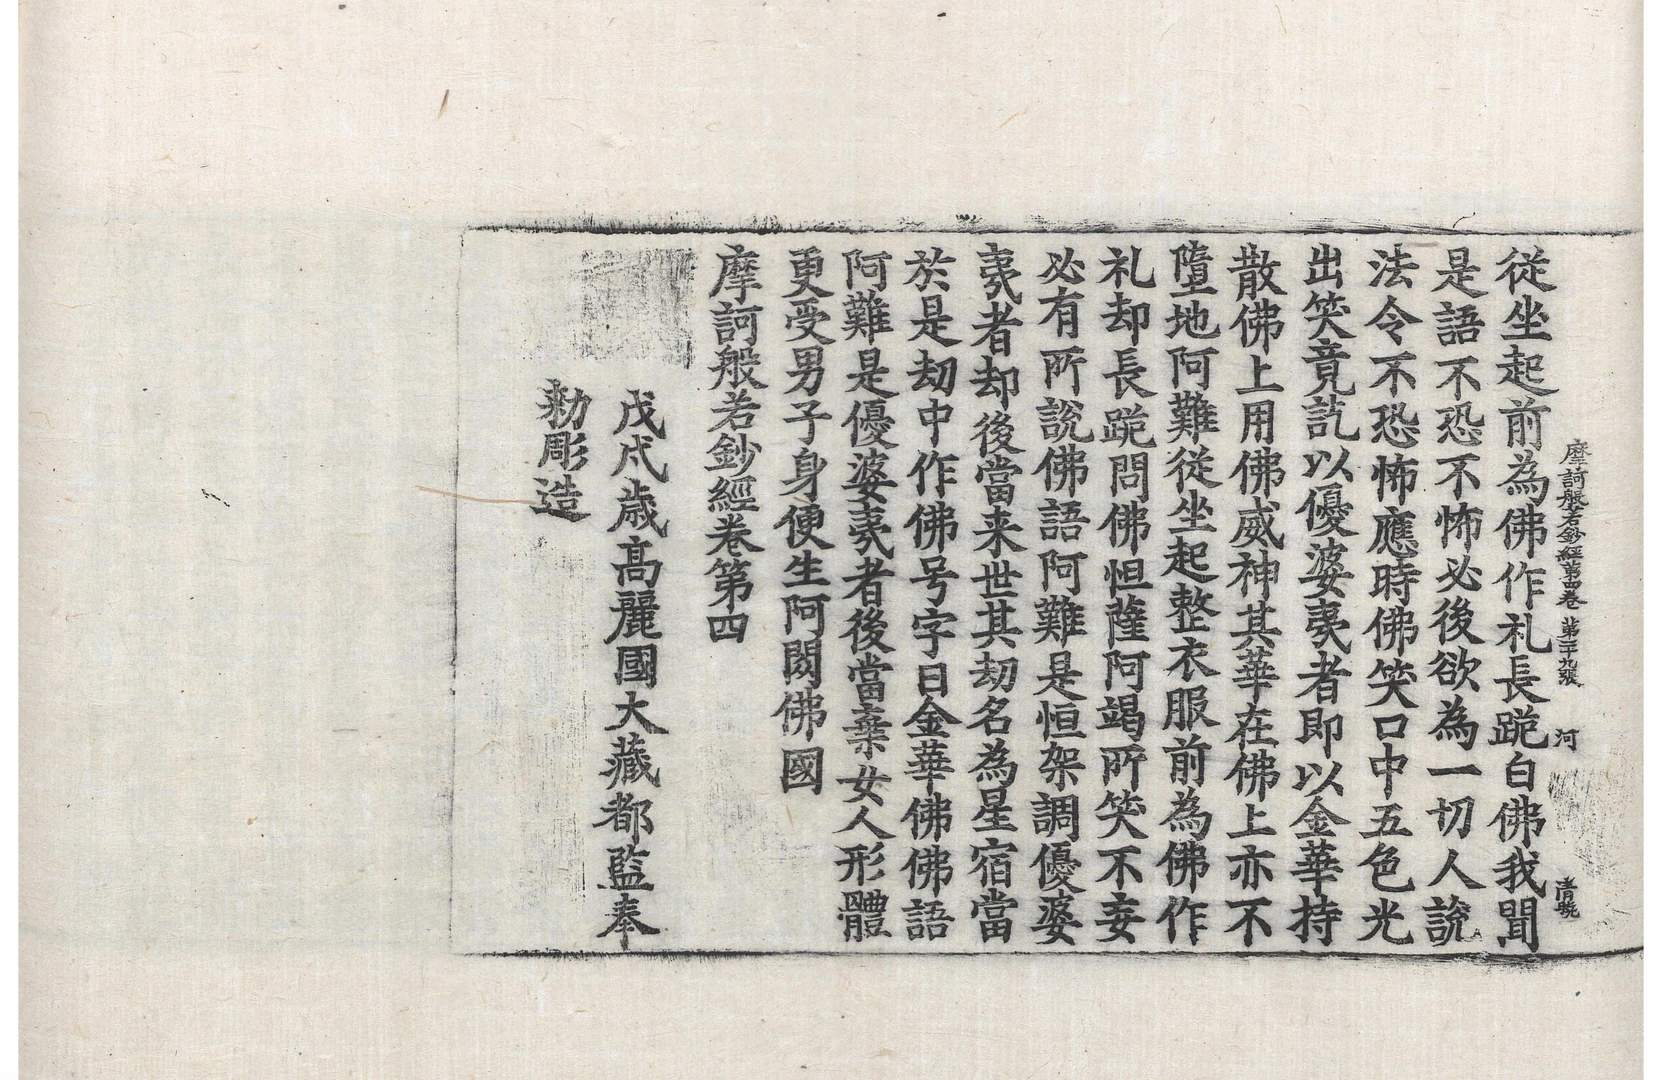 摩訶般若鈔經第四卷　第二十九張　河　清晓
從坐起前為佛作礼長跪白佛我聞
是語不恐不怖必後欲為一切人說
法令不恐怖應時佛笑口中五色光
出笑竟訖以優婆夷者即以金華持
散佛上用佛威神其華在佛上亦不
墮地阿難從坐起整衣服前為佛作
礼却長跪問佛怛薩阿竭所笑不妄
必有所說佛語阿難是恒架調優婆
夷者却後當来世其劫名為星宿當
於是劫中作佛号字曰金華佛佛語
阿難是優婆夷者後當棄女人形體
更受男子身便生阿閦佛國
摩訶般若鈔經卷第四
戊戌歲高麗國大藏都監奉
勅彫造